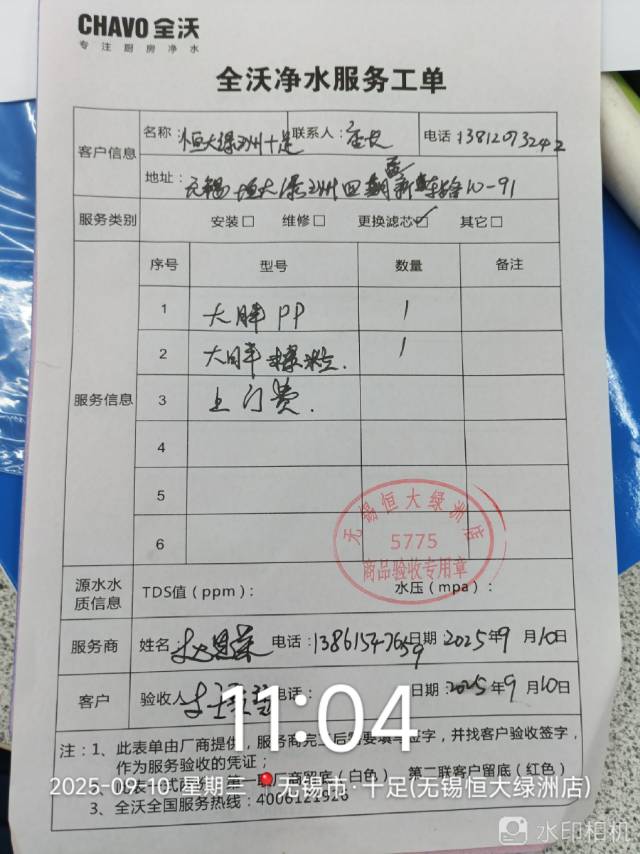 CHAVO 全沃
专注厨房净水
全沃净水服务工单
客户信息 名称：恒大绿洲十足 联系人：店长 电话：13812073242
地址：无锡恒大绿洲四期
服务类别 安装□ 维修□ 更换滤芯☑ 其它□
服务信息 序号 型号 数量 备注
1 大胖PP 1
2 大胖 1
3 上门费.
4
5
6
无锡恒大绿洲店
5775
商品验收专用章
源水水质信息 TDS值（ppm）： 水压（mpa）：
服务商 姓名： 电话：13861547659 日期：2025年9月10日
客户 验收人 电话： 日期：2025年9月10日
11:04
注：1、此表单由厂商提供，服务商完工后需要填写签字，并找客户验收签字，
作为服务验收的凭证；
厂商留底（白色） 第二联客户留底（红色）
2025-09-10 星期三 无锡市·十足(无锡恒大绿洲店)
3、全沃全国服务热线：4006121918
水印相机